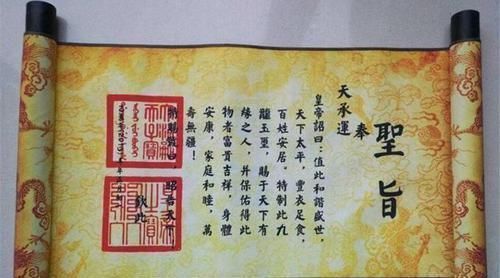 聖旨
奉
天承運
皇帝詔曰：值此和諧盛世，
天下太平，豐衣足食，
百姓安居。特制此九
龍玉璽，賜于天下有
緣之人，并保佑得此
物者富貴吉祥，身體
安康，家庭和睦，萬
壽無疆！
昭告天下
欽此